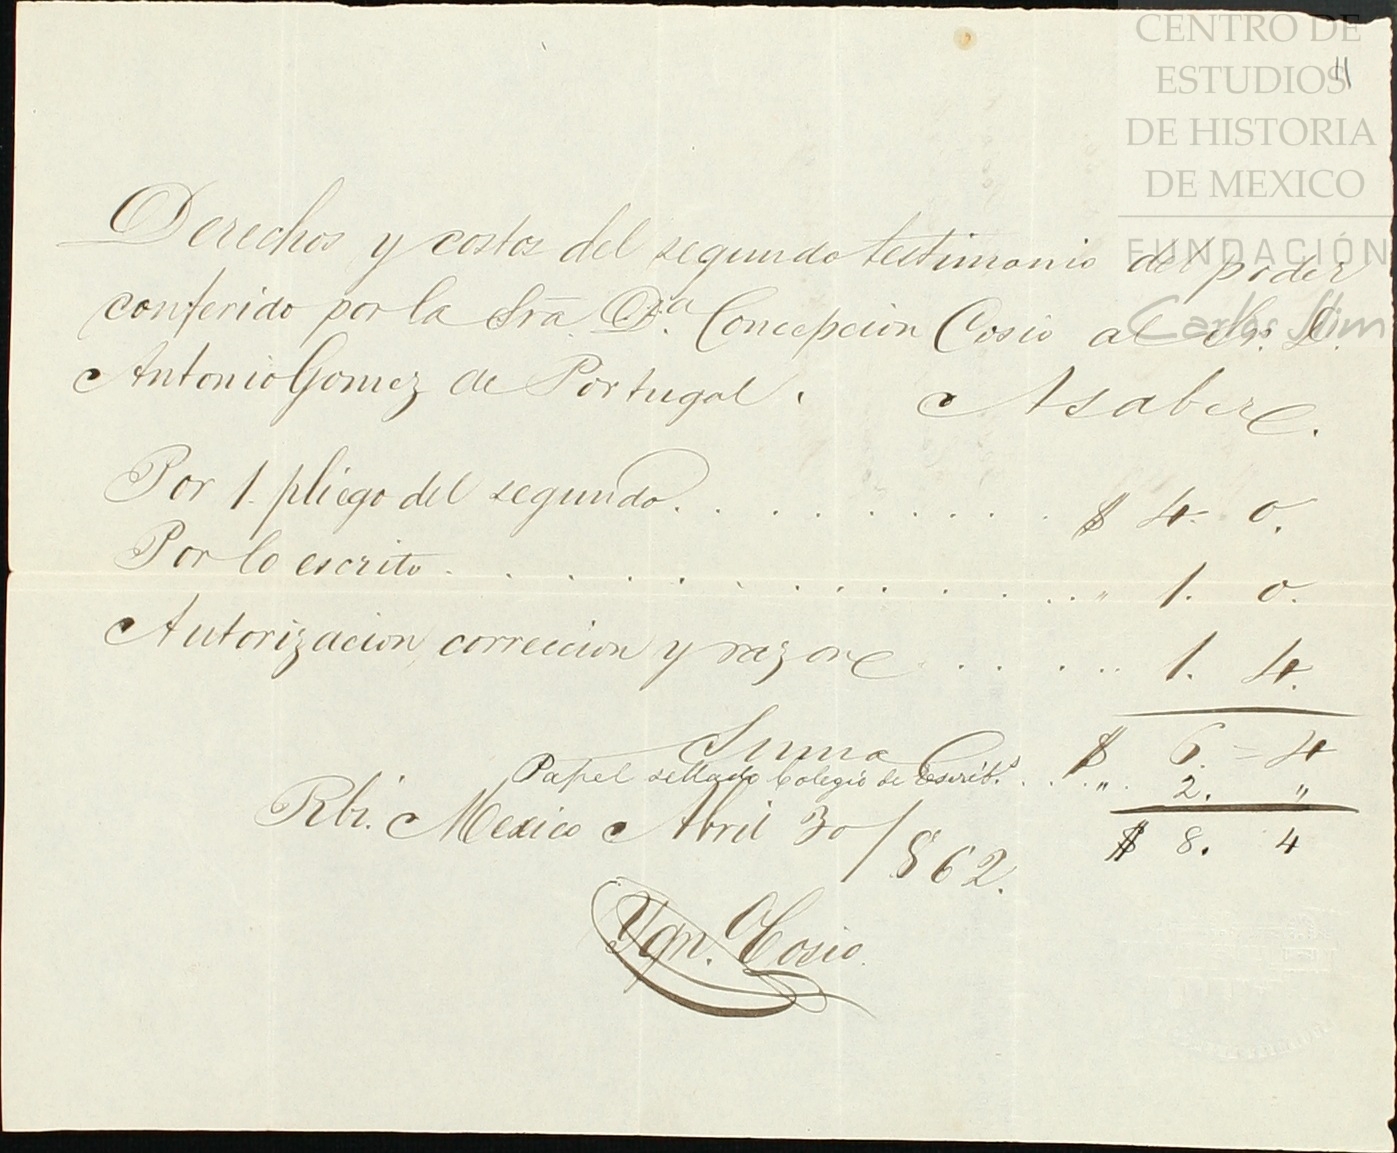 CENTRO DE
ESTUDIOS
DE HISTORIA
DE MEXICO
FUNDACIÓN
Carlos Slim
11
Derechos y costos del segundo testimonio del poder
conferido por la Sra. Da. Concepcion Cosio al Sr. D.
Antonio Gomez de Portugal. A saber.
Por 1. pliego del segundo. . . . . . . . . . $ 4. 0.
Por lo escrito . . . . . . . . . . . . . " 1. 0.
Autorizacion, correccion y razon . . . . . . 1. 4.
Suma $ 6. = 4
Papel sellado Colegio de Escribs. . . . ". 2. "
$ 8. 4
Rbi. Mexico Abril 30/862.
Ygn. Cosio.